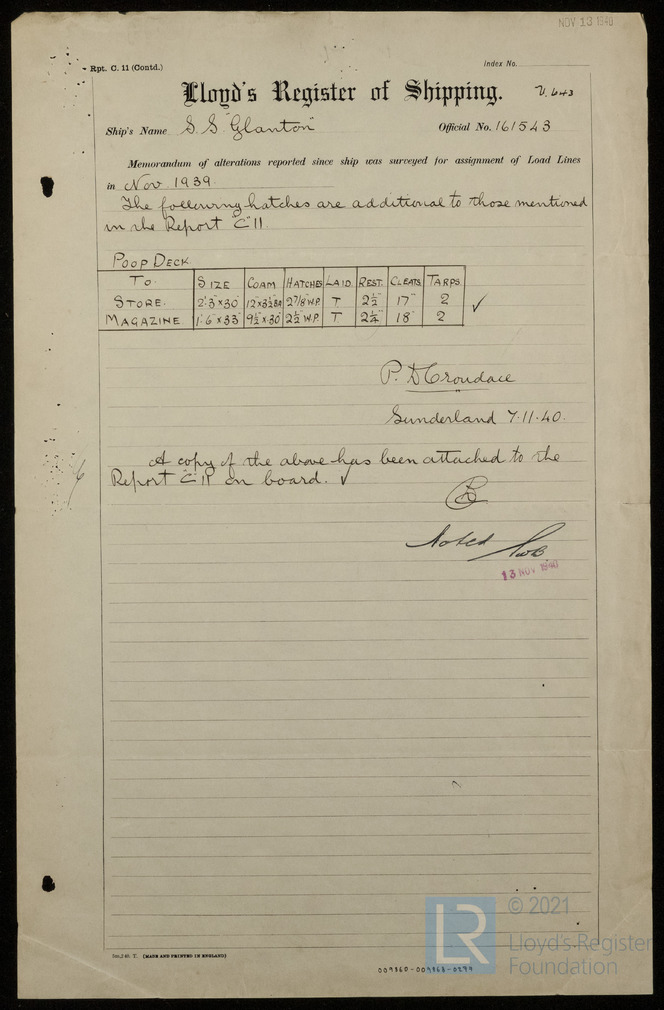 NOV 13 1940
Rpt. C. 11 (Contd.)
Index No.
Lloyd's Register of Shipping.
V. 643
Ship's Name S.S. "Glanton"
Official No. 161543
Memorandum of alterations reported since ship was surveyed for assignment of Load Lines
in Nov 1939.
The following hatches are additional to those mentioned
in the Report "C" 11.
POOP DECK
TO. SIZE COAM HATCHES LAID. REST. CLEATS. TARPS.
STORE. 2'·3"×30" 12"×3½ 2⅞" W.P. T 2½" 17" 2
MAGAZINE. 1'·6"×33" 9½"×30" 2½" W.P. T 2¼" 18" 2 ✓
P. D. Croudace
Sunderland 7·11·40.
A copy of the above has been attached to the
Report "C" 11 on board. ✓
Noted
13 NOV 1940
(MADE AND PRINTED IN ENGLAND)
009860-009868-0299
LR
© 2021
Lloyd's Register
Foundation